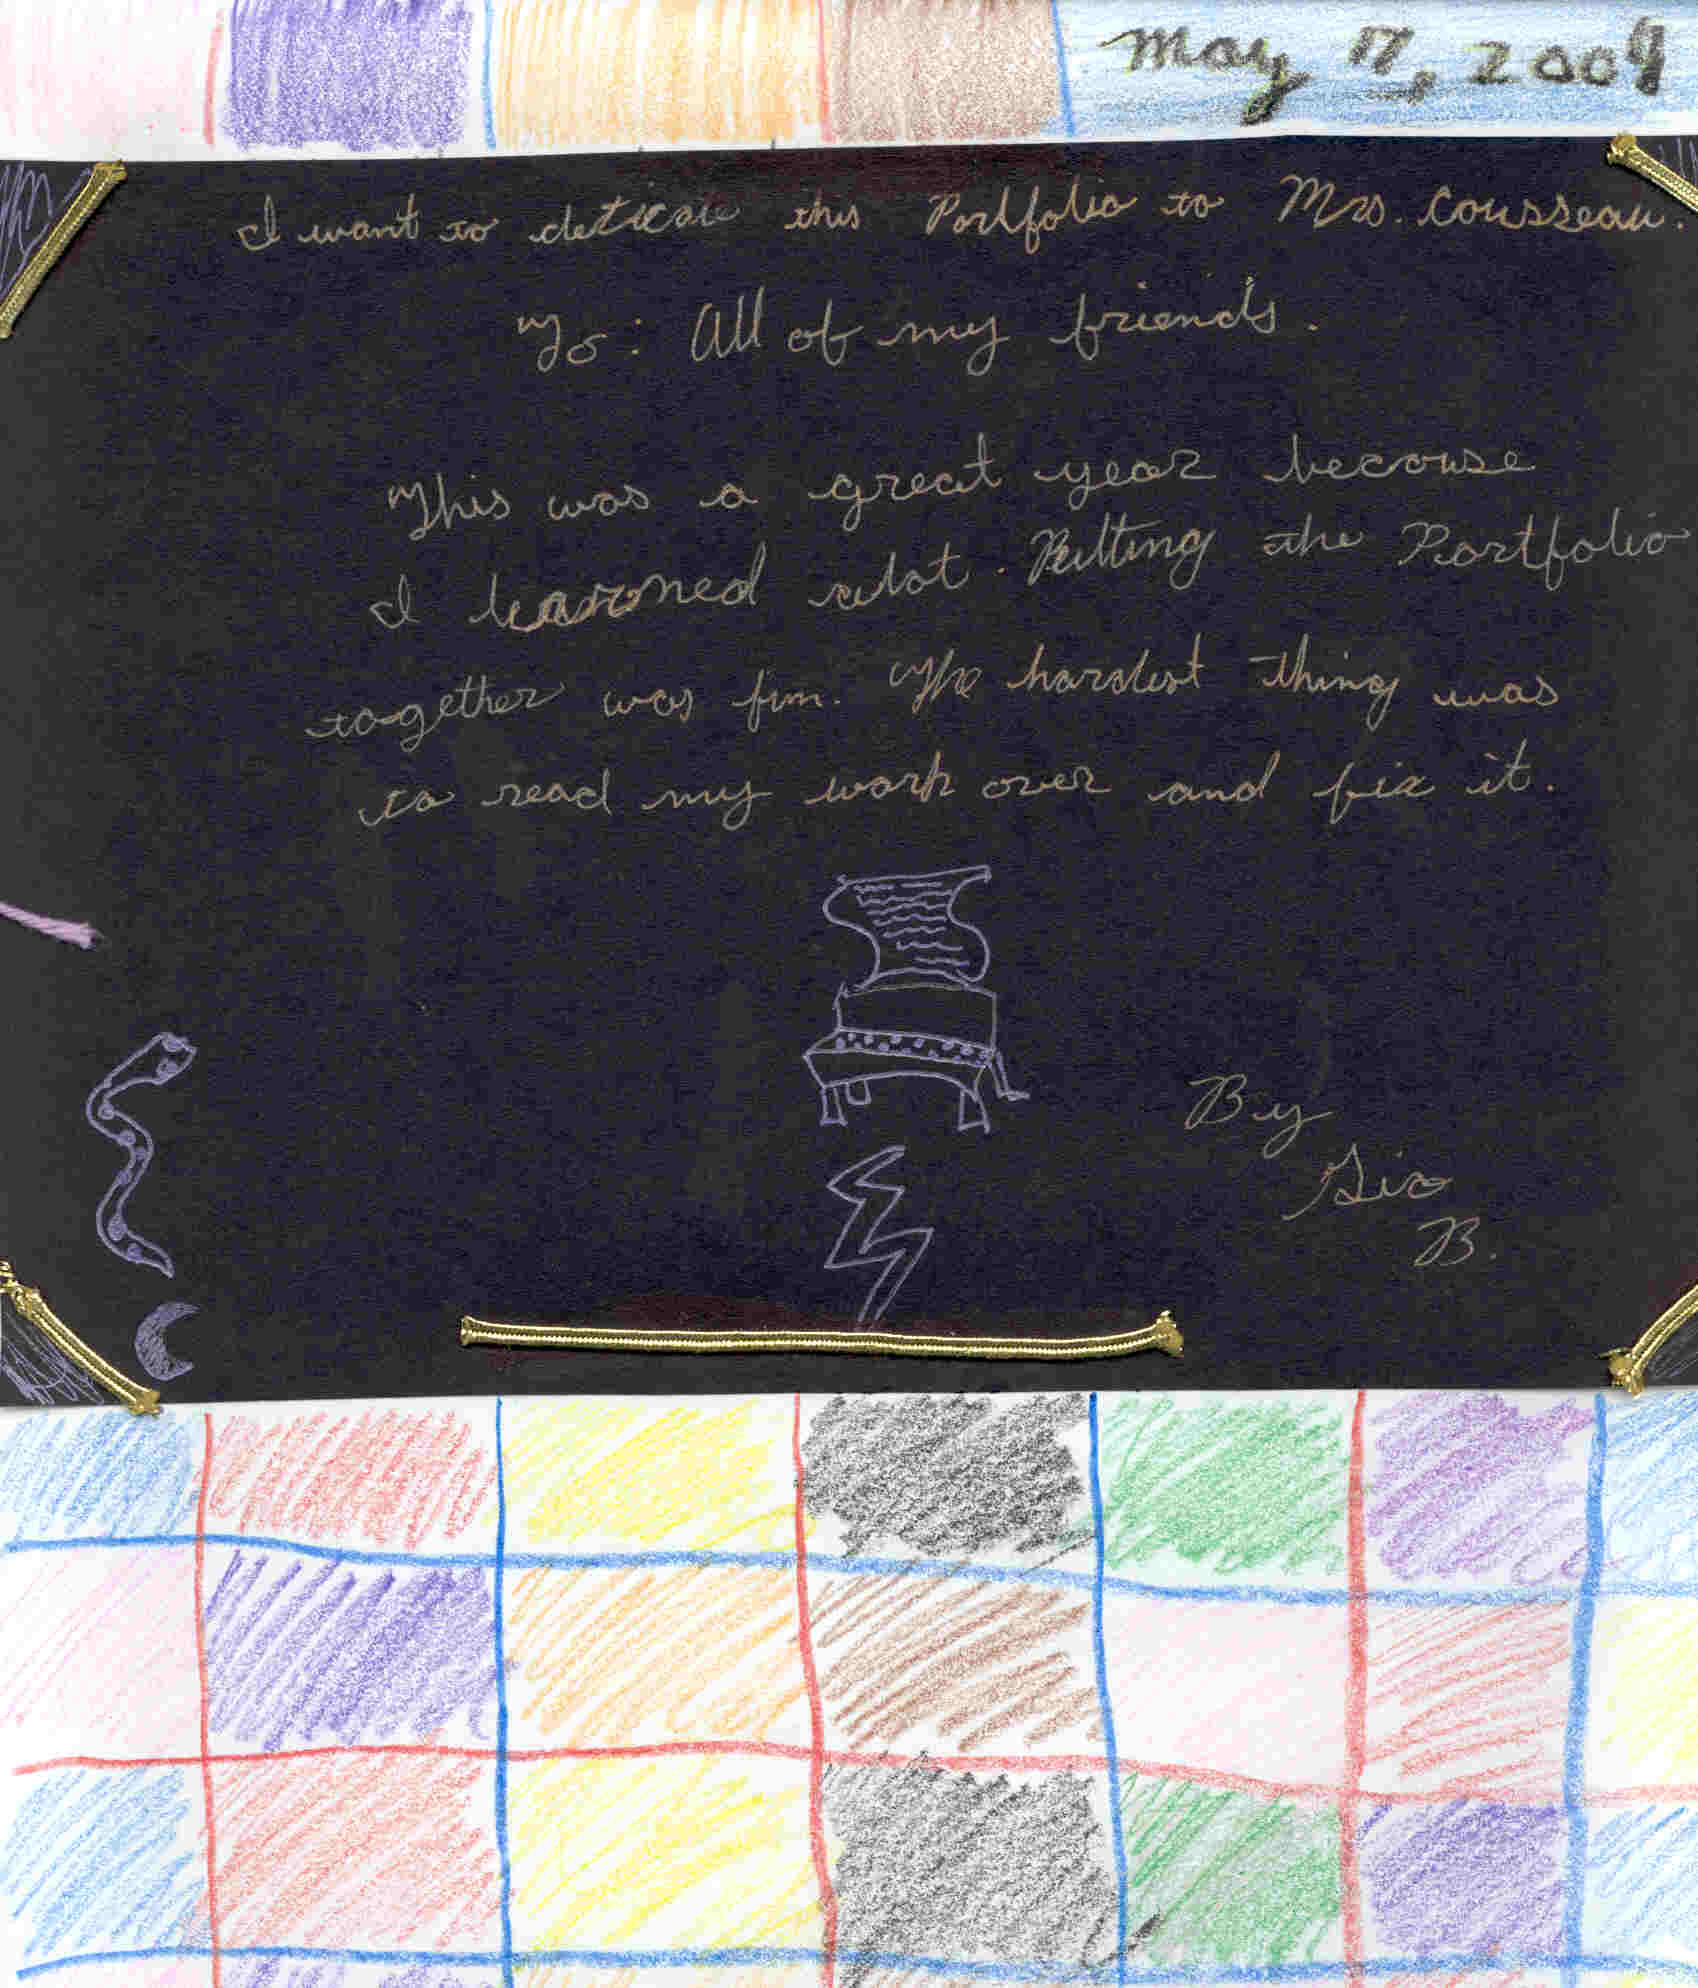 May 17, 2009
I want to deticate this Portfolio to Mrs. Cousseau.
To: All of my friends.
This was a great year because
I learned alot. Putting the Portfolio
together was fun. The hardest thing was
to read my work over and fix it.
By
Gio
B.